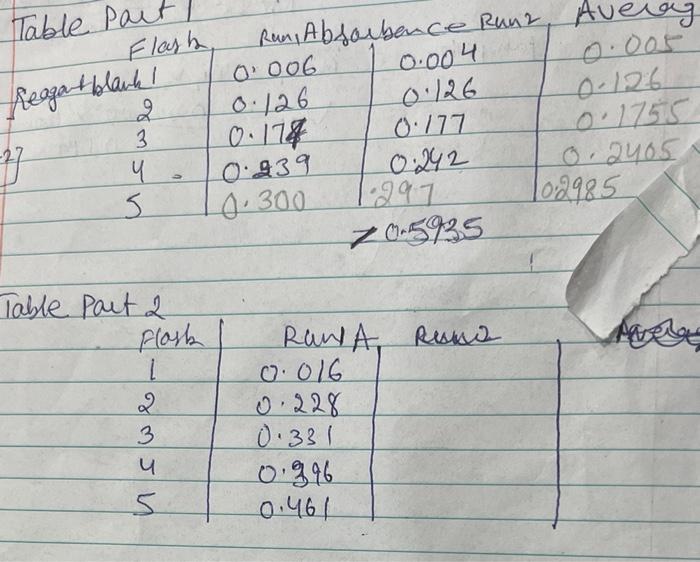 Table Part 1
Flask Run1 Absorbance Run2 Averag
Reagent blank 1 0.006 0.004 0.005
2 0.126 0.126 0.126
3 0.174 0.177 0.1755
2] 4 0.239 0.242 0.2405
5 0.300 .297 0.2985
0.5935
Table Part 2
Flask Run1 A Run2
1 0.016
2 0.228
3 0.331
4 0.396
5 0.461